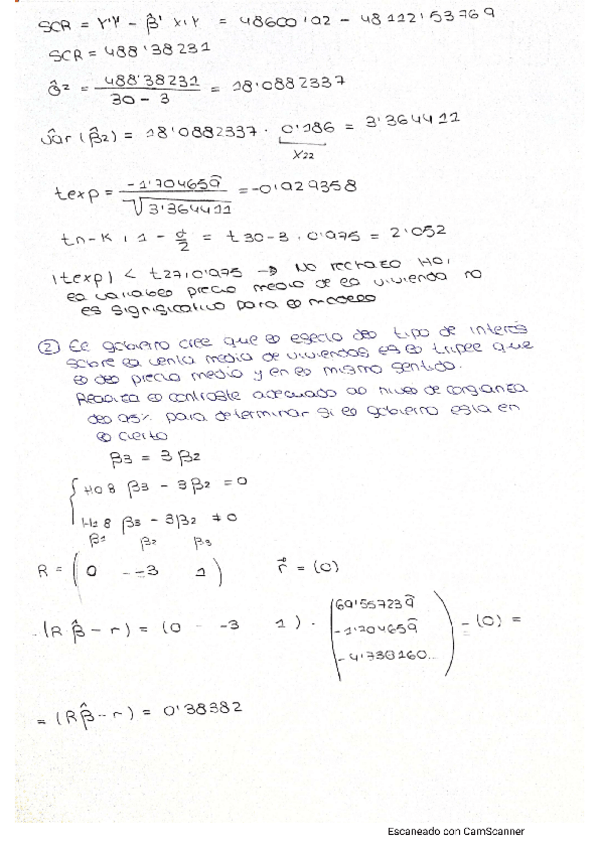 SCR = Y'Y - β̂' X'Y = 48600'02 - 48112'53769
SCR = 488'38231
σ̂² = 488'38231 / 30 - 3 = 18'0882337
Vâr (β̂2) = 18'0882337 · 0'186 = 3'364411
X22
texp = -1'704659 / √3'364411 = -0'929358
tn-K, 1 - α/2 = t 30-3, 0'975 = 2'052
|texp| < t27,0'975 → No rechazo H0,
la variable precio medio de la vivienda no
es significativo para el modelo
② El gobierno cree que el efecto del tipo de interés
sobre la venta media de viviendas es el triple que
el del precio medio y en el mismo sentido.
Realiza el contraste adecuado al nivel de confianza
del 95% para determinar si el gobierno esta en
lo cierto
β3 = 3β2
H0: β3 - 3β2 = 0
H1: β3 - 3β2 ≠ 0
β1 β2 β3
R = (0 -3 1) r⃗ = (0)
(R β̂ - r) = (0 -3 1) · (69'557239 -1'704659 -4'730160...) - (0) =
= (Rβ̂ - r) = 0'38382
Escaneado con CamScanner